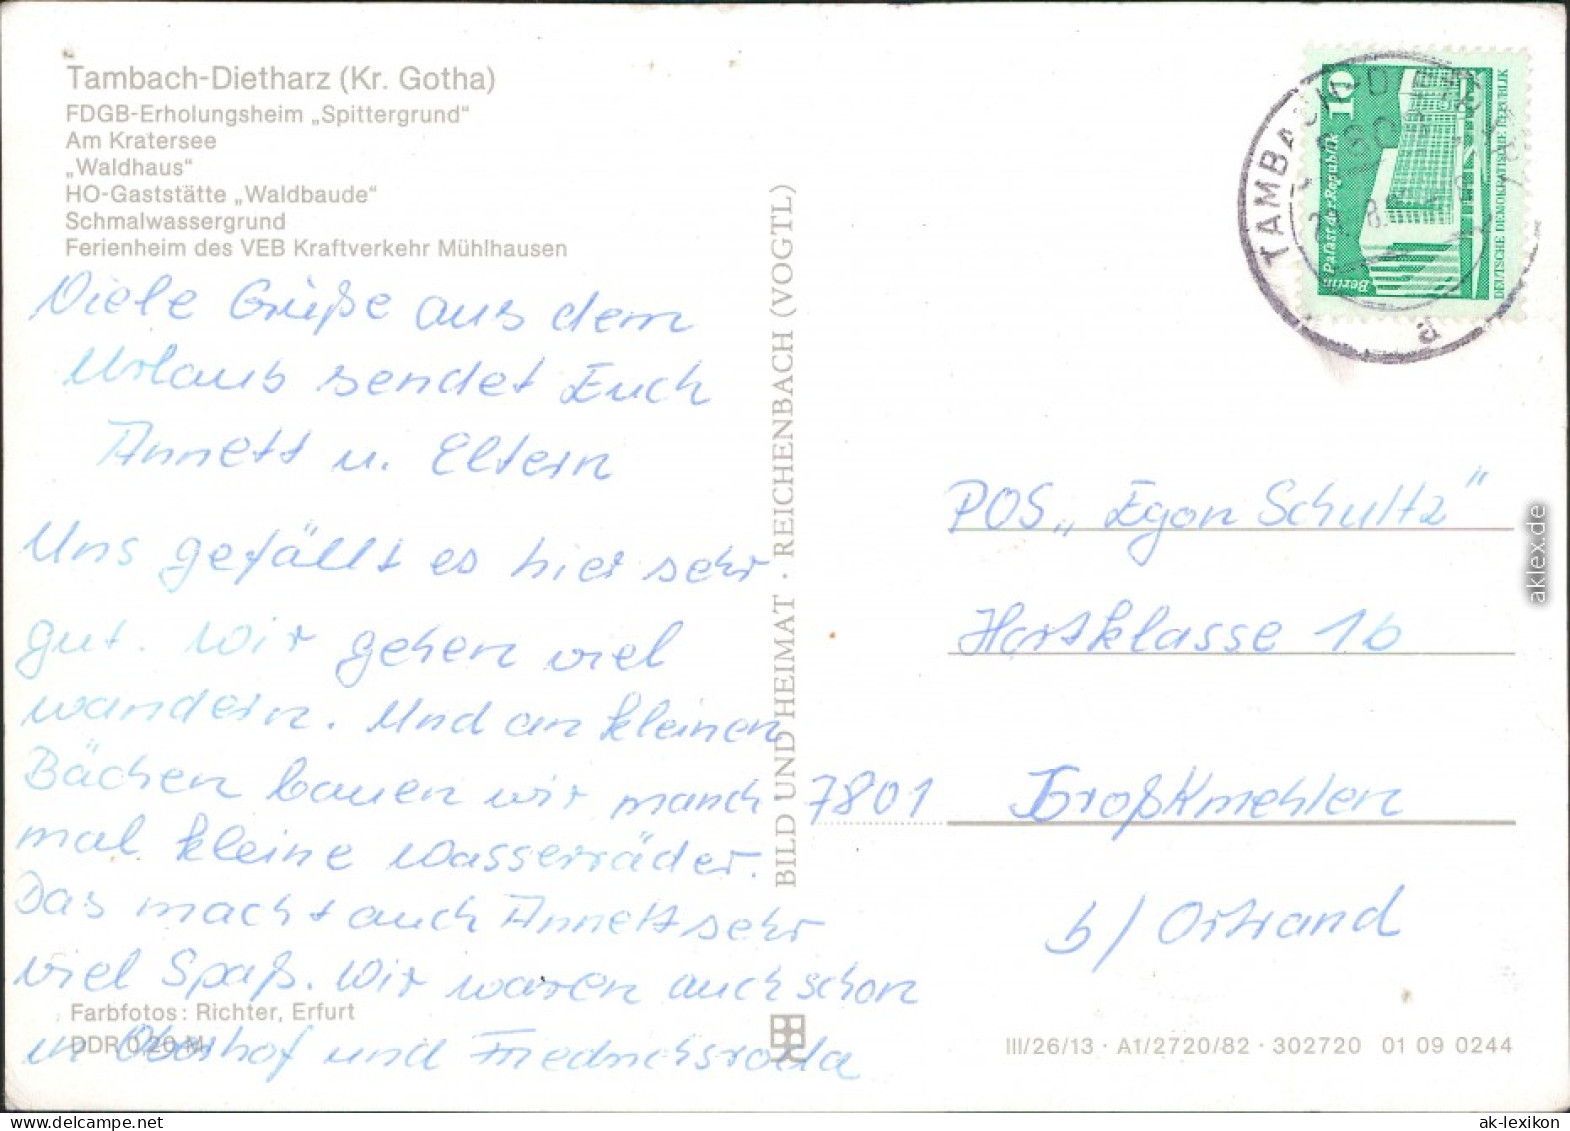 Tambach-Dietharz (Kr. Gotha)
FDGB-Erholungsheim „Spittergrund“
Am Kratersee
„Waldhaus“
HO-Gaststätte „Waldbaude“
Schmalwassergrund
Ferienheim des VEB Kraftverkehr Mühlhausen
Viele Grüße aus dem
Urlaub sendet Euch
Annett u. Eltern
Uns gefällt es hier sehr
gut. Wir gehen viel
wandern. Und an kleinen
Bächen bauen wir manch
mal kleine Wasserräder.
Das macht auch Annett sehr
viel Spaß. Wir waren auch schon
in Oberhof und Friedrichsroda
Farbfotos: Richter, Erfurt
DDR 0,20 M
BILD UND HEIMAT · REICHENBACH (VOGTL)
TAMBACH-D
a
10
Berlin Palast der Republik
DEUTSCHE DEMOKRATISCHE REPUBLIK
POS „Egon Schultz“
Hortklasse 1b
7801 Großkmehlen
b/ Ortrand
III/26/13 · A1/2720/82 · 302720 01 09 0244
aklex.de
www.delcampe.net
ak-lexikon